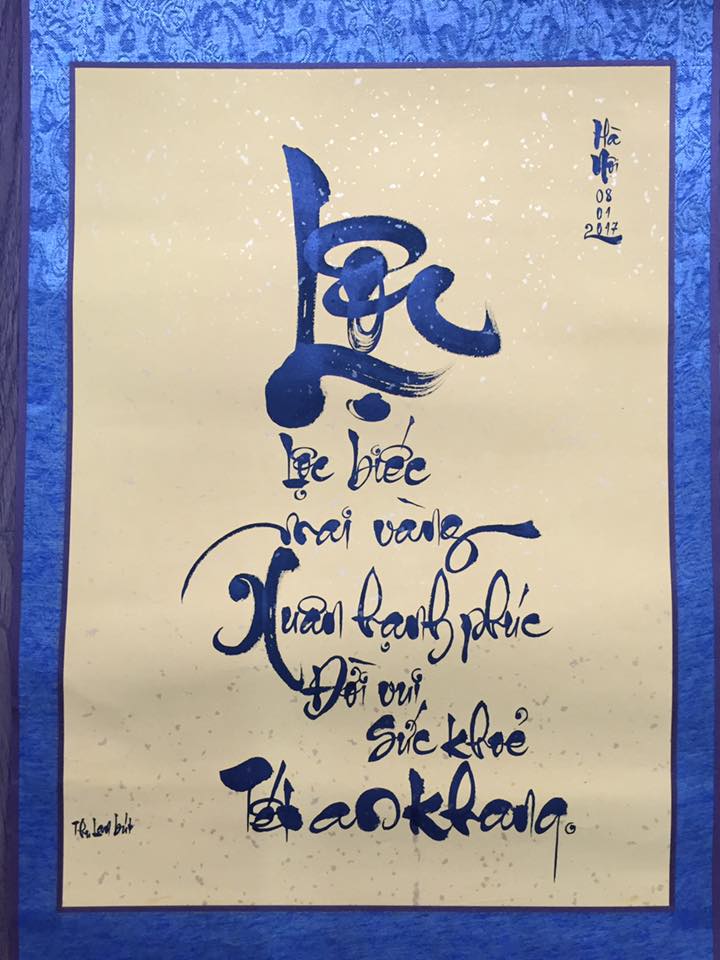 Hà
Nội
08
01
2017
Lộc
Lộc biếc
mai vàng
Xuân hạnh phúc
Đời vui
sức khoẻ
Tết an khang.
bút